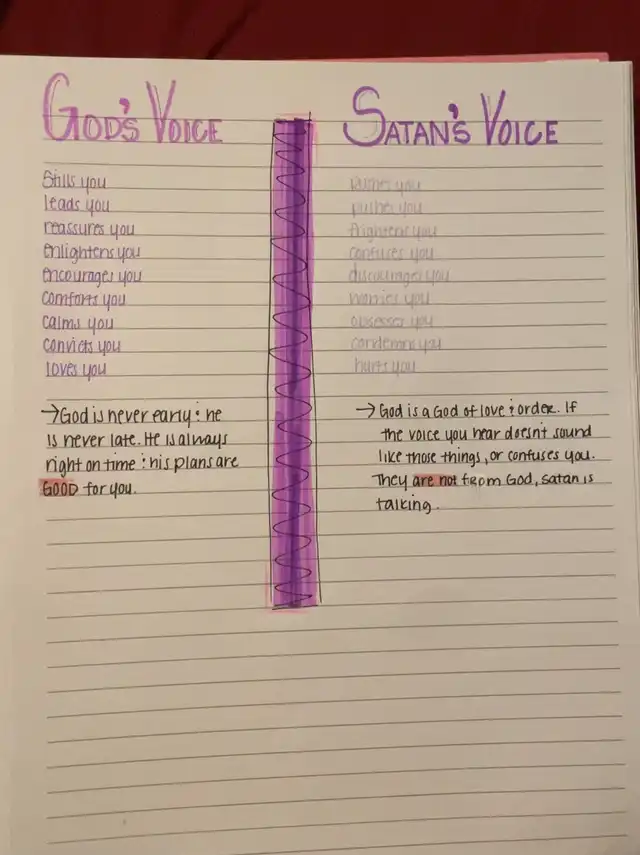 GOD'S VOICE
Stills you
leads you
reassures you
enlightens you
encourages you
comforts you
calms you
convicts you
loves you
→God is never early & he
is never late. He is always
right on time & his plans are
GOOD for you.
SATAN'S VOICE
rushes you
pushes you
frightens you
confuses you
discourages you
worries you
obsesses you
condemns you
hurts you
→ God is a God of love & order. If
the voice you hear doesn't sound
like those things, or confuses you.
They are not from God, satan is
talking.